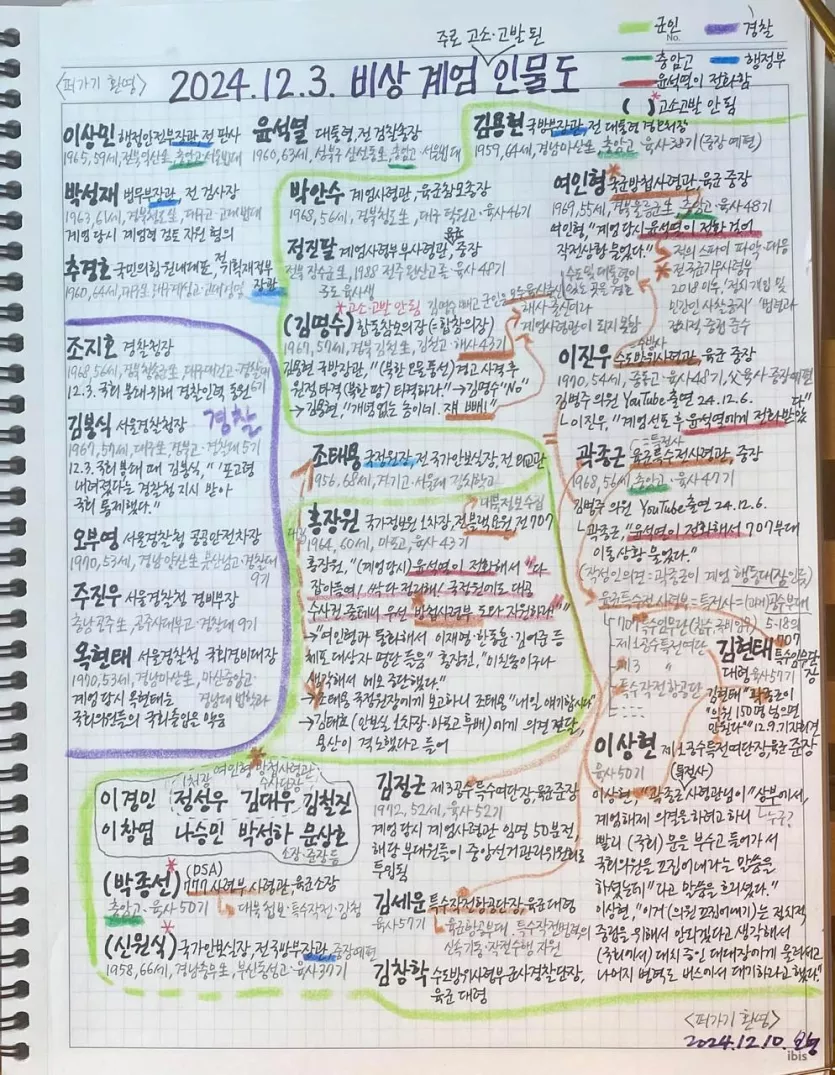 주로 고소·고발 된
군인
No.
경찰
충암고
행정부
윤석열이 전화함
( )* 고소고발 안 됨
<퍼가기 환영>
2024.12.3. 비상 계엄 인물도
이상민 행정안전부장관, 전 판사
1965, 59세, 전북익산生, 충암고·서울법대
윤석열 대통령, 전 검찰총장
1960, 63세, 성북구 삼선동生, 충암고·서울법대
김용현 국방부장관, 전 대통령 경호처장
1959, 64세, 경남마산生, 충암고·육사38기 (중장 예편)
박성재 법무부장관, 전 검사장
1963, 61세, 경북청도生, 대구고·고대법대
계엄 당시 계엄령 검토 자원 혐의
추경호 국민의힘 원내대표, 전 기획재정부
장관
1960, 64세, 대구生, 대구계성고·고대경영
박안수 계엄사령관, 육군참모총장
1968, 56세, 경북청도生, 대구 덕원고·육사46기
정진팔 계엄사령부부사령관, 육군 중장
전북 장수군生, 1988 전주 완산고졸·육사48기
3도 육사생
*고소·고발 안 됨
(김명수) 합동참모의장 (=합참의장)
1967, 57세, 경북 김천生, 김천고·해사43기
김용현 국방장관, "(북한 오물풍선) 경고 사격 후
원점 타격(북한 땅) 타격하라." → 김명수 "No"
→ 김용현, "개념없는 놈이네. 쟤 빼!"
해사 출신이라
계엄사령관이 되지 못함
여인형* 국군방첩사령관, 육군 중장
1969, 55세, 경북울릉군生, 충암고·육사48기
여인형, "계엄 당시 윤석열이 전화 걸어
작전상황 물었다."
→ 적의 스파이 파악·대응
* 전 국군기무사령부
2018 이후, '정치 개입 및
민간인 사찰 금지' 법령과
정치적 중립 준수
수방사
이진우 수도방위사령관, 육군 중장
1970, 54세, 중동고·육사48기, 父육사·중장예편
김병주 의원 YouTube 출연 24.12.6.
└ 이진우, "계엄 선포 후 윤석열에게 전화 받았
다"
=특전사
곽종근 육군특수전사령관, 중장
1968, 56세, 충남고·육사47기
김병주 의원 YouTube 출연 24.12.6.
└ 곽종근, "윤석열이 전화해서 707부대
이동상황 물었다."
(작성인의견 = 곽종근이 계엄 행동대(장인듯))
육군특수전사령부 = 특전사 = (미래)공수부대
707 특수임무단
제1공수특전여단
제3 〃
특수작전항공단
5·18의
707
김현태 특수임무단
장
대령 육사57기
김현태 "곽종근이
"의원 150명 넘으면
안된다"" 12.9.기자회견
조지호 경찰청장
1968, 56세, 경북청송生, 대구대건고·경찰대
6기
12.3. 국회 봉쇄 위해 경찰인력 동원
경찰
김봉식 서울경찰청장
1967, 57세, 대구生, 경북고·경찰대 5기
12.3. 국회 봉쇄 때 김봉식, "'포고령
내려졌다'는 경찰청 지시 받아
국회 통제했다."
오부명 서울경찰청 공공안전차장
1970, 53세, 경남양산生, 울산남고·경찰대
9기
주진우 서울경찰청 경비부장
충남공주生, 공주사대부고·경찰대 9기
옥현태 서울경찰청 국회경비대장
1970, 53세, 경남마산生, 마산중앙고·
경남대 법학과
계엄 당시 옥현태는
국회의원들의 국회출입을 막음
조태용 국정원장, 전 국가안보실장, 전 외교관
1956, 68세, 경기고·서울대 정치학과
대북정보수집
홍장원 국가정보원 1차장, 전 블랙요원, 전 707
1964, 60세, 마포고, 육사 43기
홍장원, "(계엄 당시) 윤석열이 전화해서 "다
잡아들여! 싹다 정리해! 국정원에도 대공
수사권 줄테니 우선 방첩사령부 도와 지원하라!""
→ "여인형과 통화해서 이재명·한동훈·김어준 등
체포 대상자 명단 들음" 홍장원, "미친놈이구나
생각해서 메모 중단했다."
→ 조태용 국정원장에게 보고하니 조태용 "내일 얘기합시다"
→ 김태효 (안보실 1차장·마포고 후배)에게 의견 전달,
용산이 격노했다고 들어
여인형 방첩사령관
1처장
수사단장
이경민 정성우 김대우 김철진
이창엽 나승민 박성하 윤상호
소장·준장 등
*
(박종선) (DSA)
777 사령부 사령관, 육군소장
충암고·육사 50기
→ 대북첩보·특수작전·감청
*
(신원식) 국가안보실장, 전 국방부장관, 중장예편
1958, 66세, 경남통영生, 부산동성고·육사37기
김정근 제3공수특수여단장, 육군준장
1972, 52세, 육사52기
계엄 당시 계엄사령관 임명 50분전,
해당 부대원들이 중앙선거관리위원회로
투입됨
김세운 특수작전항공단장, 육군 대령
육사57기
└ 육군항공부대, 특수작전병력의
신속기동·작전수행 지원
김창학 수도방위사령부군사경찰단장,
육군 대령
이상현 제1공수특전여단장, 육군 준장
육사50기 (특전사)
이상현, "곽종근사령관님이 "상부에서,
계엄해제 의결을 하려고 하니
└누구?
빨리 (국회) 문을 부수고 들어가서
국회의원을 끄집어내라는 말씀을
하셨는데" 라고 말씀을 흐리셨다."
이상현, "이거 (의원 끄집어내기)는 정치적
중립을 위해서 안되겠다고 생각해서
(국회에서) 대치 중인 대대장에게 물러서고
나머지 병력도 버스에서 대기하라고 했다."
<퍼가기 환영>
2024.12.10.
ibis